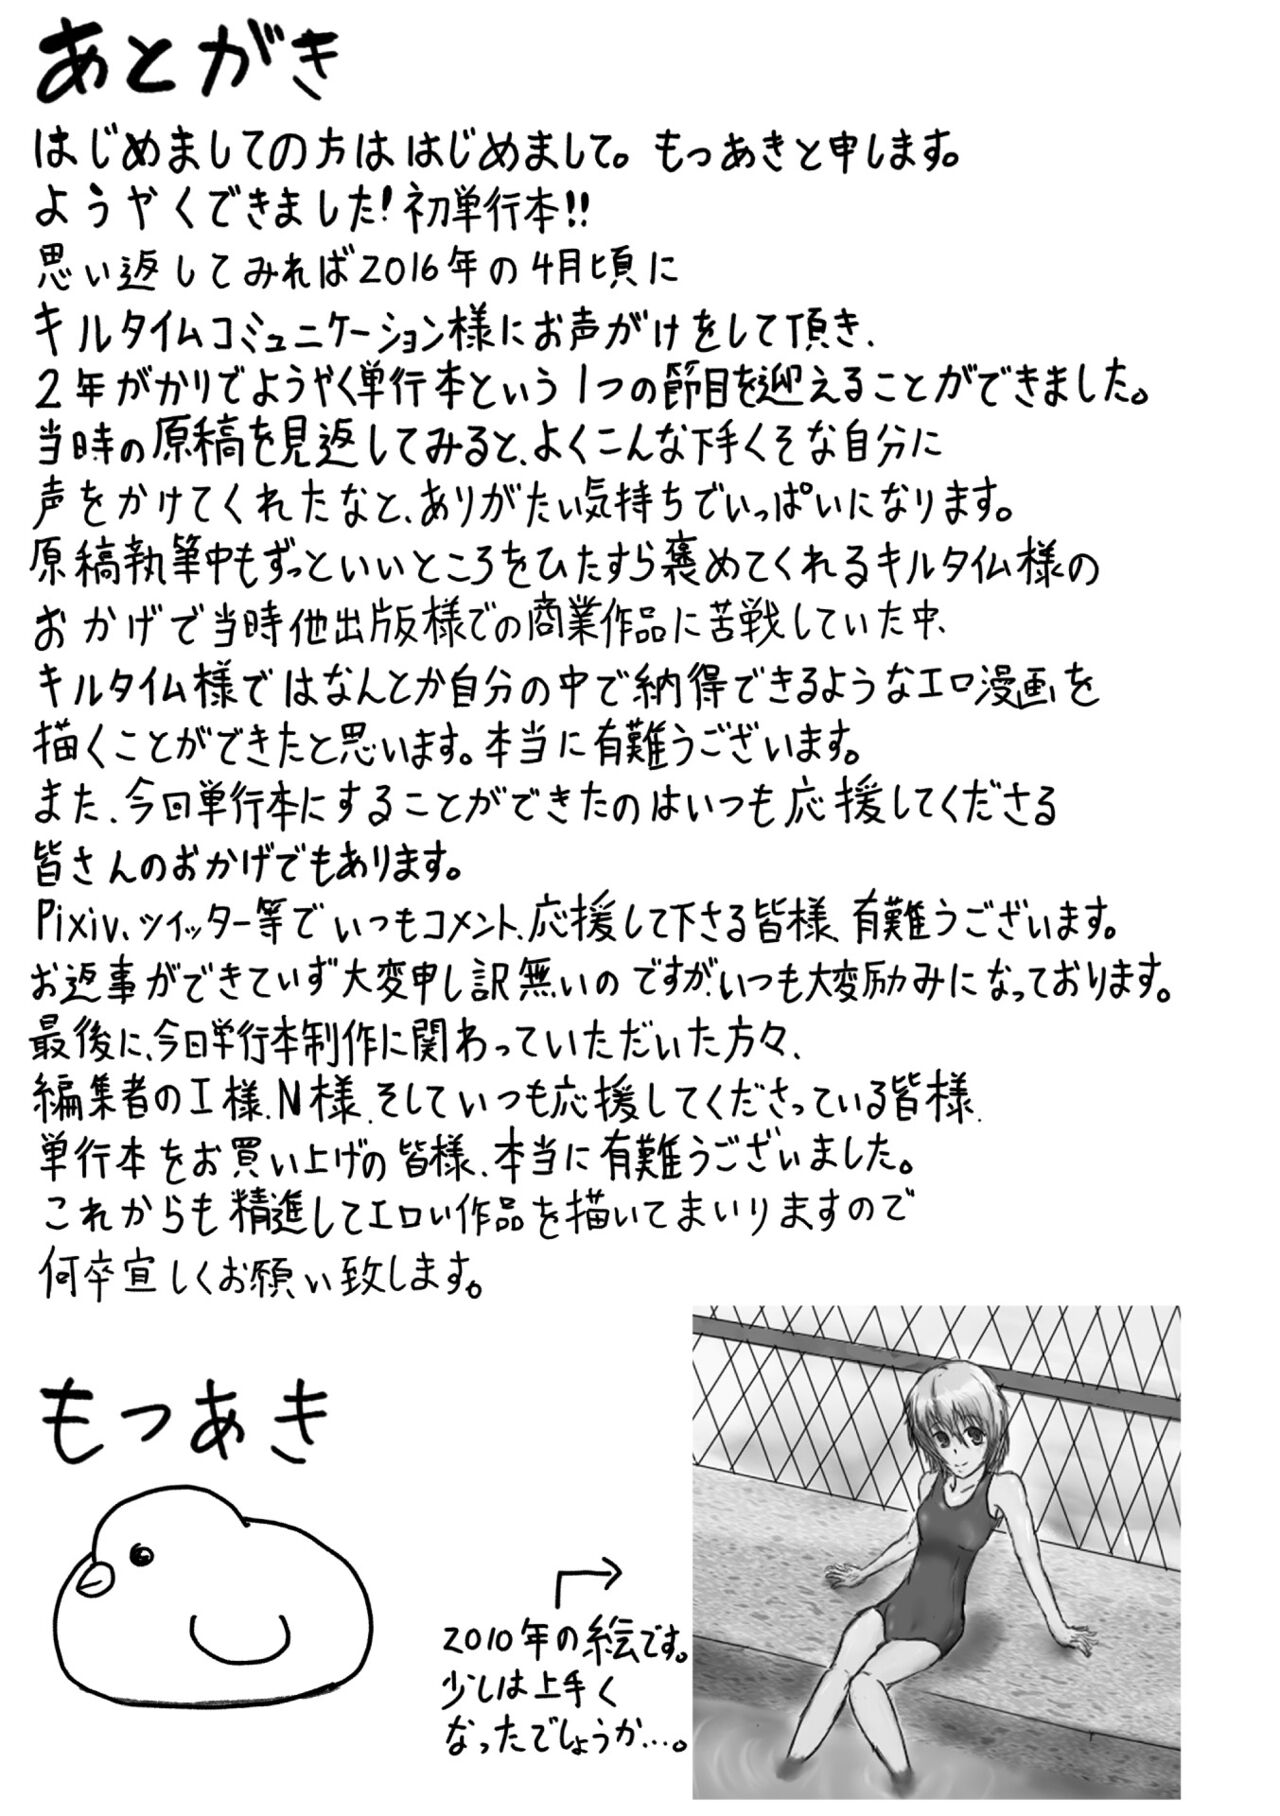 あとがき
はじめましての方は はじめまして。もつあきと申します。
ようやくできました!初単行本!!
思い返してみれば2016年の4月頃に
キルタイムコミュニケーション様にお声がけをして頂き、
2年がかりでようやく単行本という1つの節目を迎えることができました。
当時の原稿を見返してみると、よくこんな下手くそな自分に
声をかけてくれたなと、ありがたい気持ちでいっぱいになります。
原稿執筆中もずっといいところをひたすら褒めてくれるキルタイム様の
おかげで当時他出版様での商業作品に苦戦していた中、
キルタイム様ではなんとか自分の中で納得できるようなエロ漫画を
描くことができたと思います。本当に有難うございます。
また、今回単行本にすることができたのはいつも応援してくださる
皆さんのおかげでもあります。
Pixiv、ツイッター等でいつもコメント、応援して下さる皆様、有難うございます。
お返事ができていず大変申し訳無いのですが、いつも大変励みになっております。
最後に、今回単行本制作に関わっていただいた方々、
編集者のI様、N様、そしていつも応援してくださっている皆様、
単行本をお買い上げの皆様、本当に有難うございました。
これからも精進してエロい作品を描いてまいりますので
何卒宜しくお願い致します。
もつあき
2010年の絵です。
少しは上手く
なったでしょうか…。